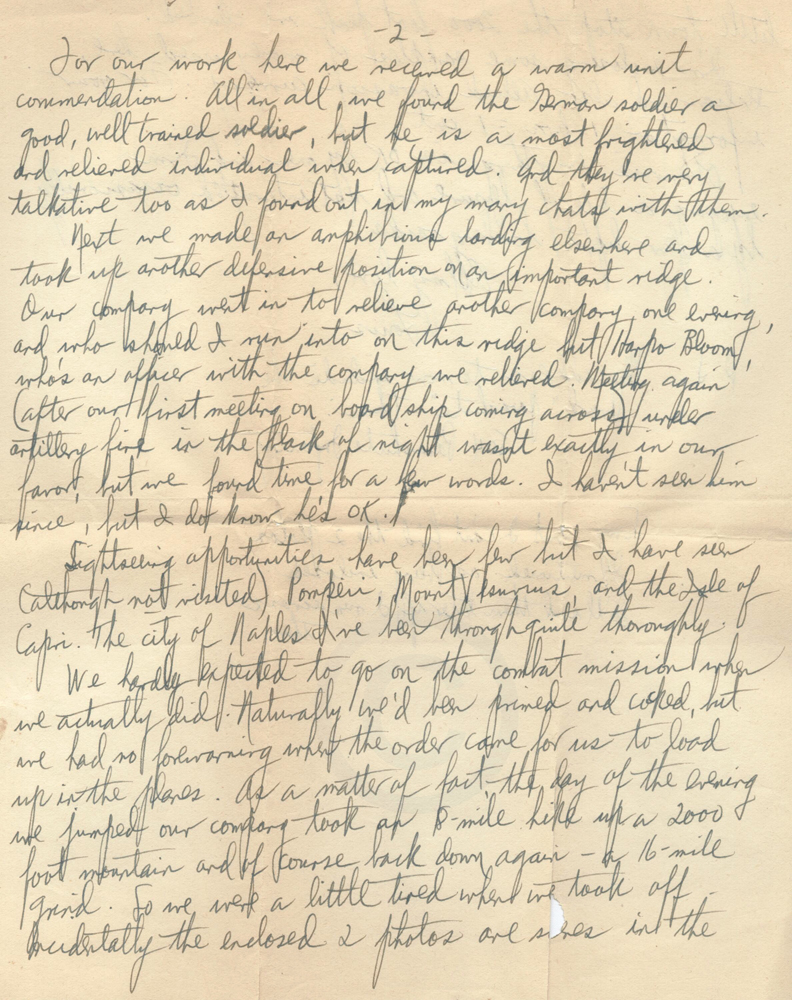 -2-
For our work here we received a warm unit
commendation. All in all, we found the German soldier a
good, well trained soldier, but he is a most frightened
and relieved individual when captured. And they're very
talkative too as I found out in my many chats with them.
Next we made an amphibious landing elsewhere and
took up another defensive position on an important ridge.
Our company went in to relieve another company one evening,
and who should I run into on this ridge but Harpo Bloom,
who's an officer with the company we relieved. Meeting again
(after our first meeting on board ship coming across) under
artillery fire in the black of night wasn't exactly in our
favor, but we found time for a few words. I haven't seen him
since, but I do know he's OK.
Sightseeing opportunities have been few but I have seen
(although not visited) Pompeii, Mount Vesuvius, and the Isle of
Capri. The city of Naples I've been through quite thoroughly.
We hardly expected to go on the combat mission when
we actually did. Naturally we'd been primed and cocked, but
we had no forewarning when the order came for us to load
up in the planes. As a matter of fact, the day of the evening
we jumped our company took an 8-mile hike up a 2000
foot mountain and of course back down again - a 16-mile
grind. So we were a little tired when we took off.
Incidentally the enclosed 2 photos are in the